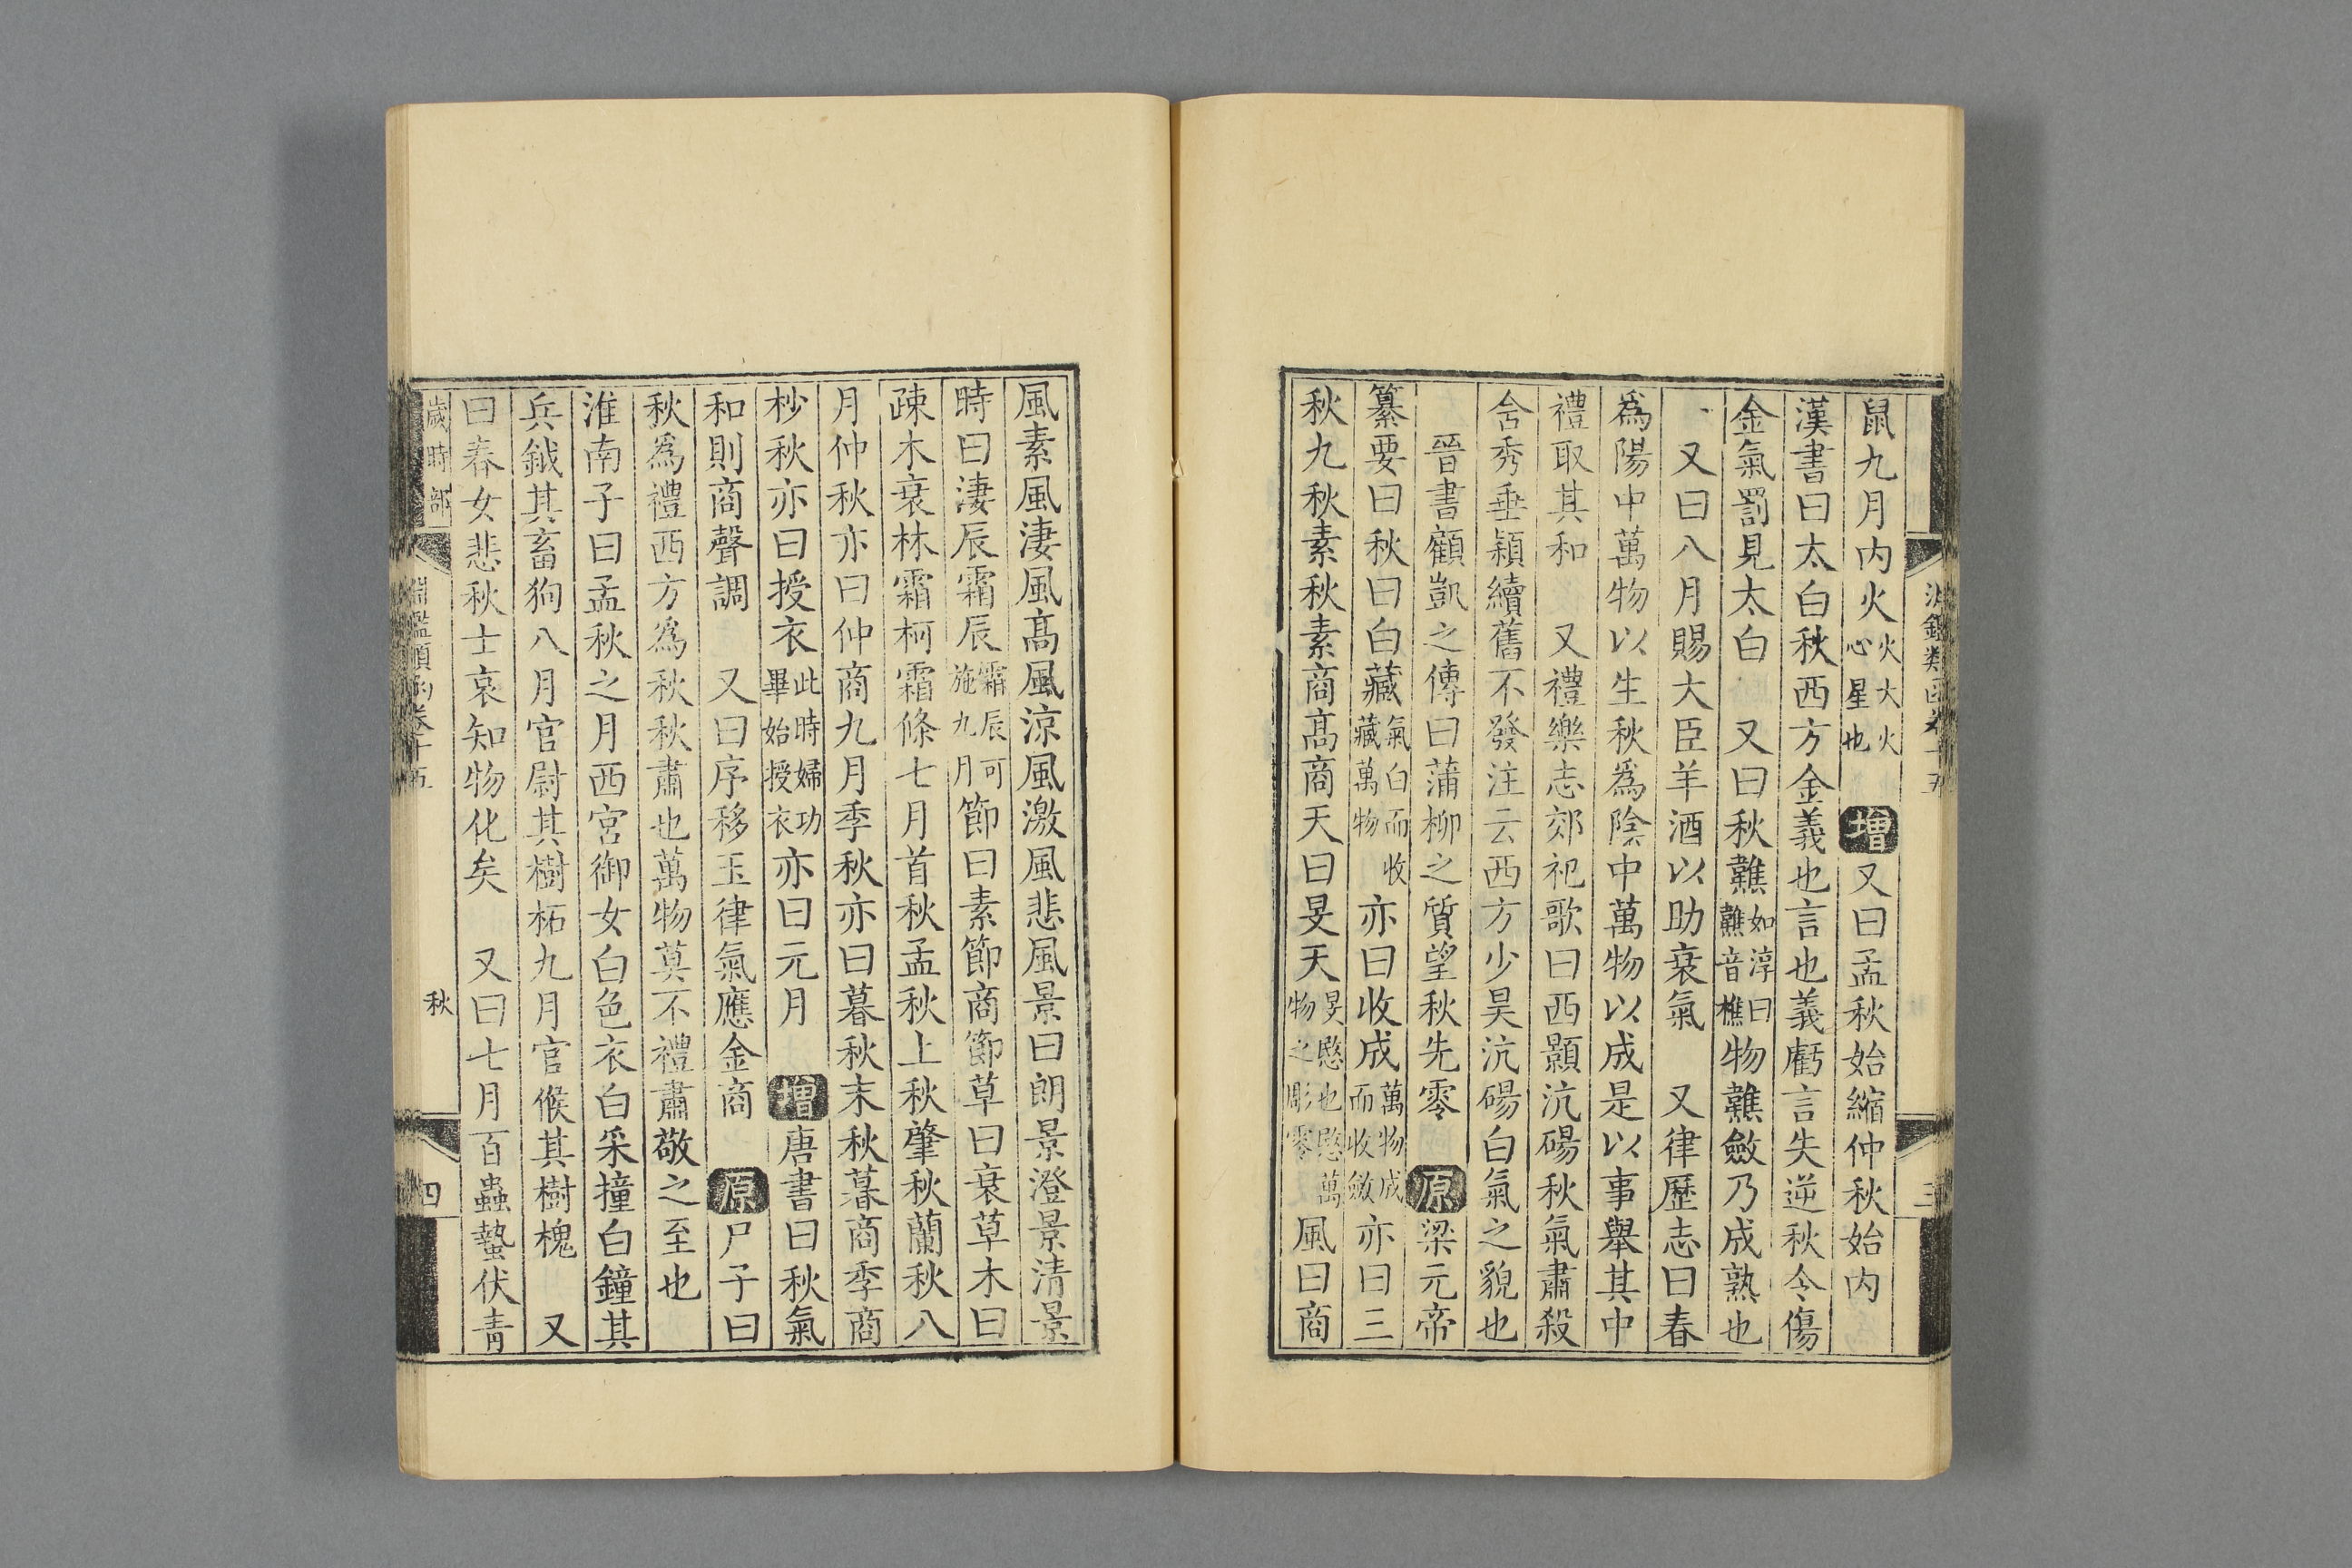 鼠九月内火火大火心星也增又曰孟秋始縮仲秋始内
漢書曰太白秋西方金義也言也義虧言失逆秋令傷
金氣罰見太白　又曰秋䊤如淳曰䊤音樵物䊤斂乃成熟也
又曰八月賜大臣羊酒以助衰氣　又律歷志曰春
爲陽中萬物以生秋爲陰中萬物以成是以事舉其中
禮取其和　又禮樂志郊祀歌曰西顥沆碭秋氣肅殺
含秀垂穎續舊不發注云西方少昊沆碭白氣之貌也
晉書顧凱之傳曰蒲柳之質望秋先零　原梁元帝
纂要曰秋曰白藏氣白而收藏萬物亦曰收成萬物成而收斂亦曰三
秋九秋素秋素商高商天曰旻天旻愍也愍萬物之彫零風曰商
淵鑑類函卷十五
三
風素風淒風高風涼風激風悲風景曰朗景澄景清景
時曰淒辰霜辰霜辰可施九月節曰素節商節草曰衰草木曰
疎木衰林霜柯霜條七月首秋孟秋上秋肇秋蘭秋八
月仲秋亦曰仲商九月季秋亦曰暮秋末秋暮商季商
杪秋亦曰授衣此時婦功畢始授衣亦曰元月　增唐書曰秋氣
和則商聲調　又曰序移玉律氣應金商　原尸子曰
秋爲禮西方爲秋秋肅也萬物莫不禮肅敬之至也
淮南子曰孟秋之月西宮御女白色衣白采撞白鐘其
兵鉞其畜狗八月官尉其樹柘九月官候其樹槐　又
曰春女悲秋士哀知物化矣　又曰七月百蟲蟄伏靑
歲時部
淵鑑類函卷十五
秋
四